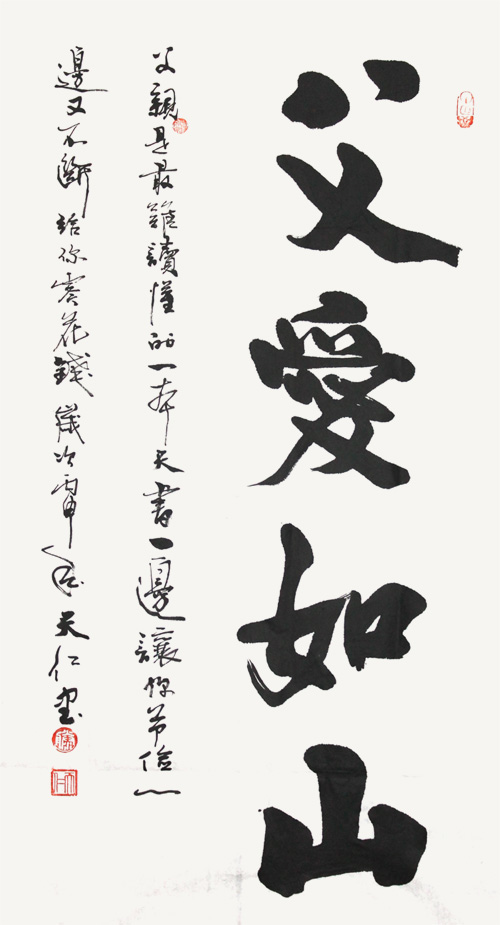 父愛如山
父親是最難讀懂的一本天書一邊讓你節儉一
邊又不斷給你零花錢歲次丙申年天仁書